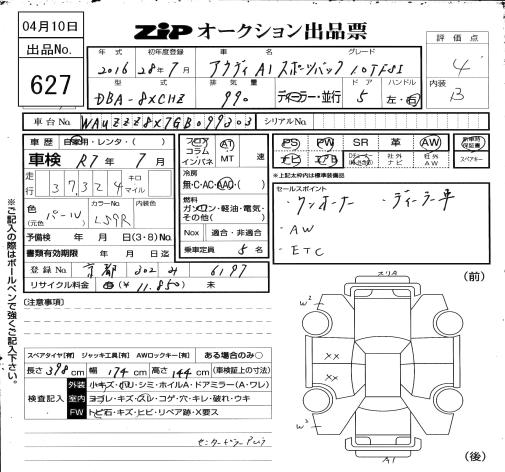 04月10日
ZiP オークション出品票
出品No.
627
年式 初年度登録 車名 グレード
2016 28年7月 アウディ A1 スポーツバック 1.0TFSI
型式 排気量 ドア ハンドル
DBA-8XCHZ 990 ディーラー・並行 5 左・右
評価点
4
内装
B
車台No. WAUZZZ8X7GB099303 シリアルNo.
車歴 自家用・レンタ・( )
車検 R7年 7月
走行 37,324 キロ マイル
色 (元色) パール カラーNo. LS9R 内装色
予備検 年 月 日(3・8)No.
書類有効期限 年 月 日迄
登録No. 京都 302 6197
リサイクル料金 (¥ 11,850) 未
フロア コラム インパネ AT MT 速
冷房
無・C・AC・AAC・( )
燃料
ガソリン・軽油・電気・その他( )
Nox 適合・非適合
乗車定員 5 名
PS PW SR 革 AW
ナビ エアB 社外ナビ 社外AW
新車時保証書
スペアキー
*上記太枠内は標準装備品
セールスポイント
・ワンオーナー ・ディーラー車
・AW
・ETC
(注意事項)
※ご記入の際はボールペンで強くご記入下さい。
スペアタイヤ[有] ジャッキ工具[有] AWロックキー[有] ある場合のみ○
長さ 398 cm 幅 174 cm 高さ 144 cm (車検証上の寸法)
検査記入
外装 小キズ・凹・シミ・ホイルA・ドアミラー(A・ワレ)
室内 ヨゴレ・キズ・スレ・コゲ・穴・キレ・破れ・ウキ
FW トビ石・キズ・ヒビ・リペア跡・X要ス
(前)
W2
XX
XX
W3
A1
(後)